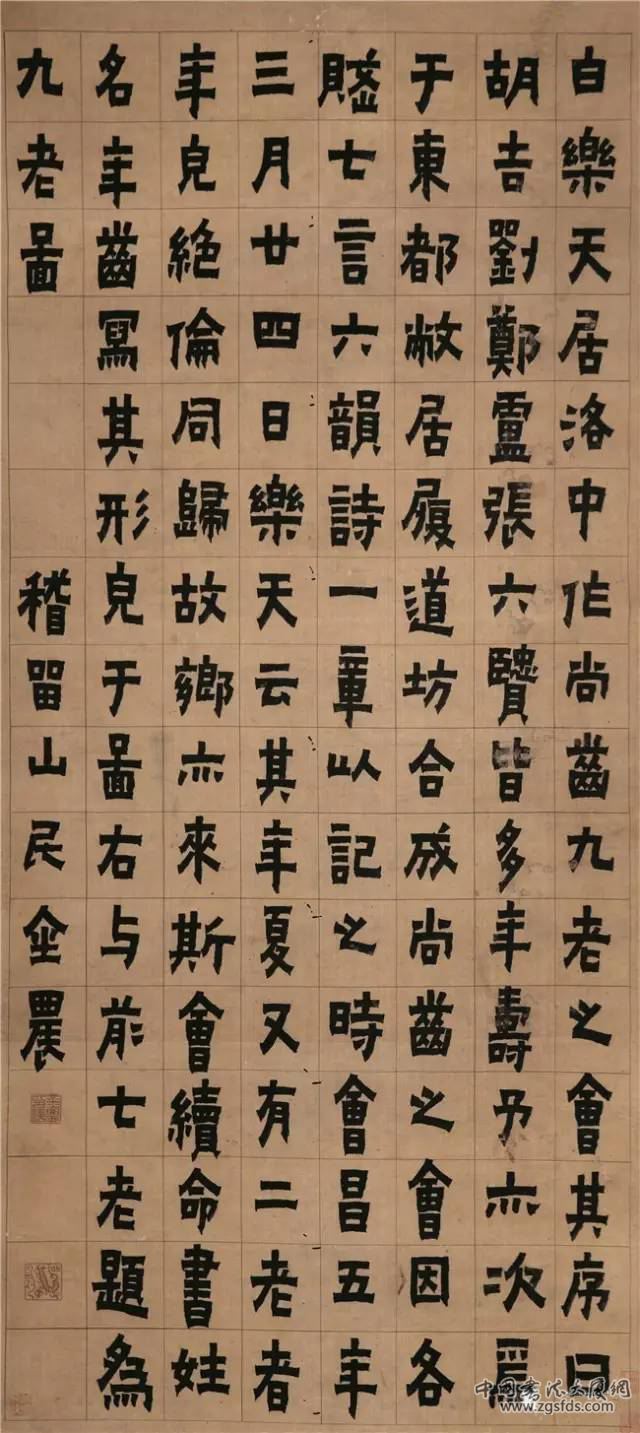 白樂天居洛中作尚齒九老之會其序曰
胡吉劉鄭盧張六賢皆多年壽予亦次焉
于東都敝居履道坊合成尚齒之會因各
賦七言六韻詩一章以記之時會昌五年
三月廿四日樂天云其年夏又有二老者
年皃絕倫同歸故鄉亦來斯會續命書姓
名年齒寫其形皃于圖右与前七老題為
九老圖 稽留山民金農
中国书法大厦網
www.zgsfds.com